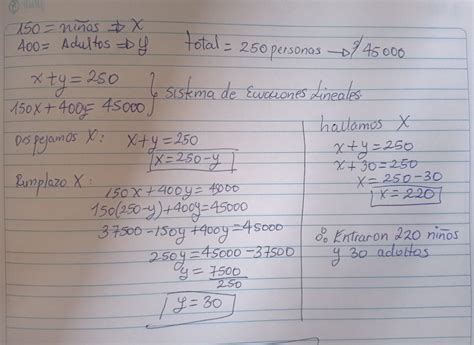 150 = niños ⇒ X
400 = Adultos ⇒ y
total = 250 personas → $45000
x+y = 250
150x + 400y = 45000
Sistema de Ecuaciones Lineales
Despejamos X: x+y = 250
x = 250-y
Rmplazo X:
150x + 400y = 4000
150(250-y)+400y = 45000
37500 - 150y + 400y = 45000
250y = 45000 - 37500
y = 7500
250
y = 30
hallamos X
x+y = 250
x + 30 = 250
x = 250-30
x = 220
Entraron 220 niños
y 30 adultos